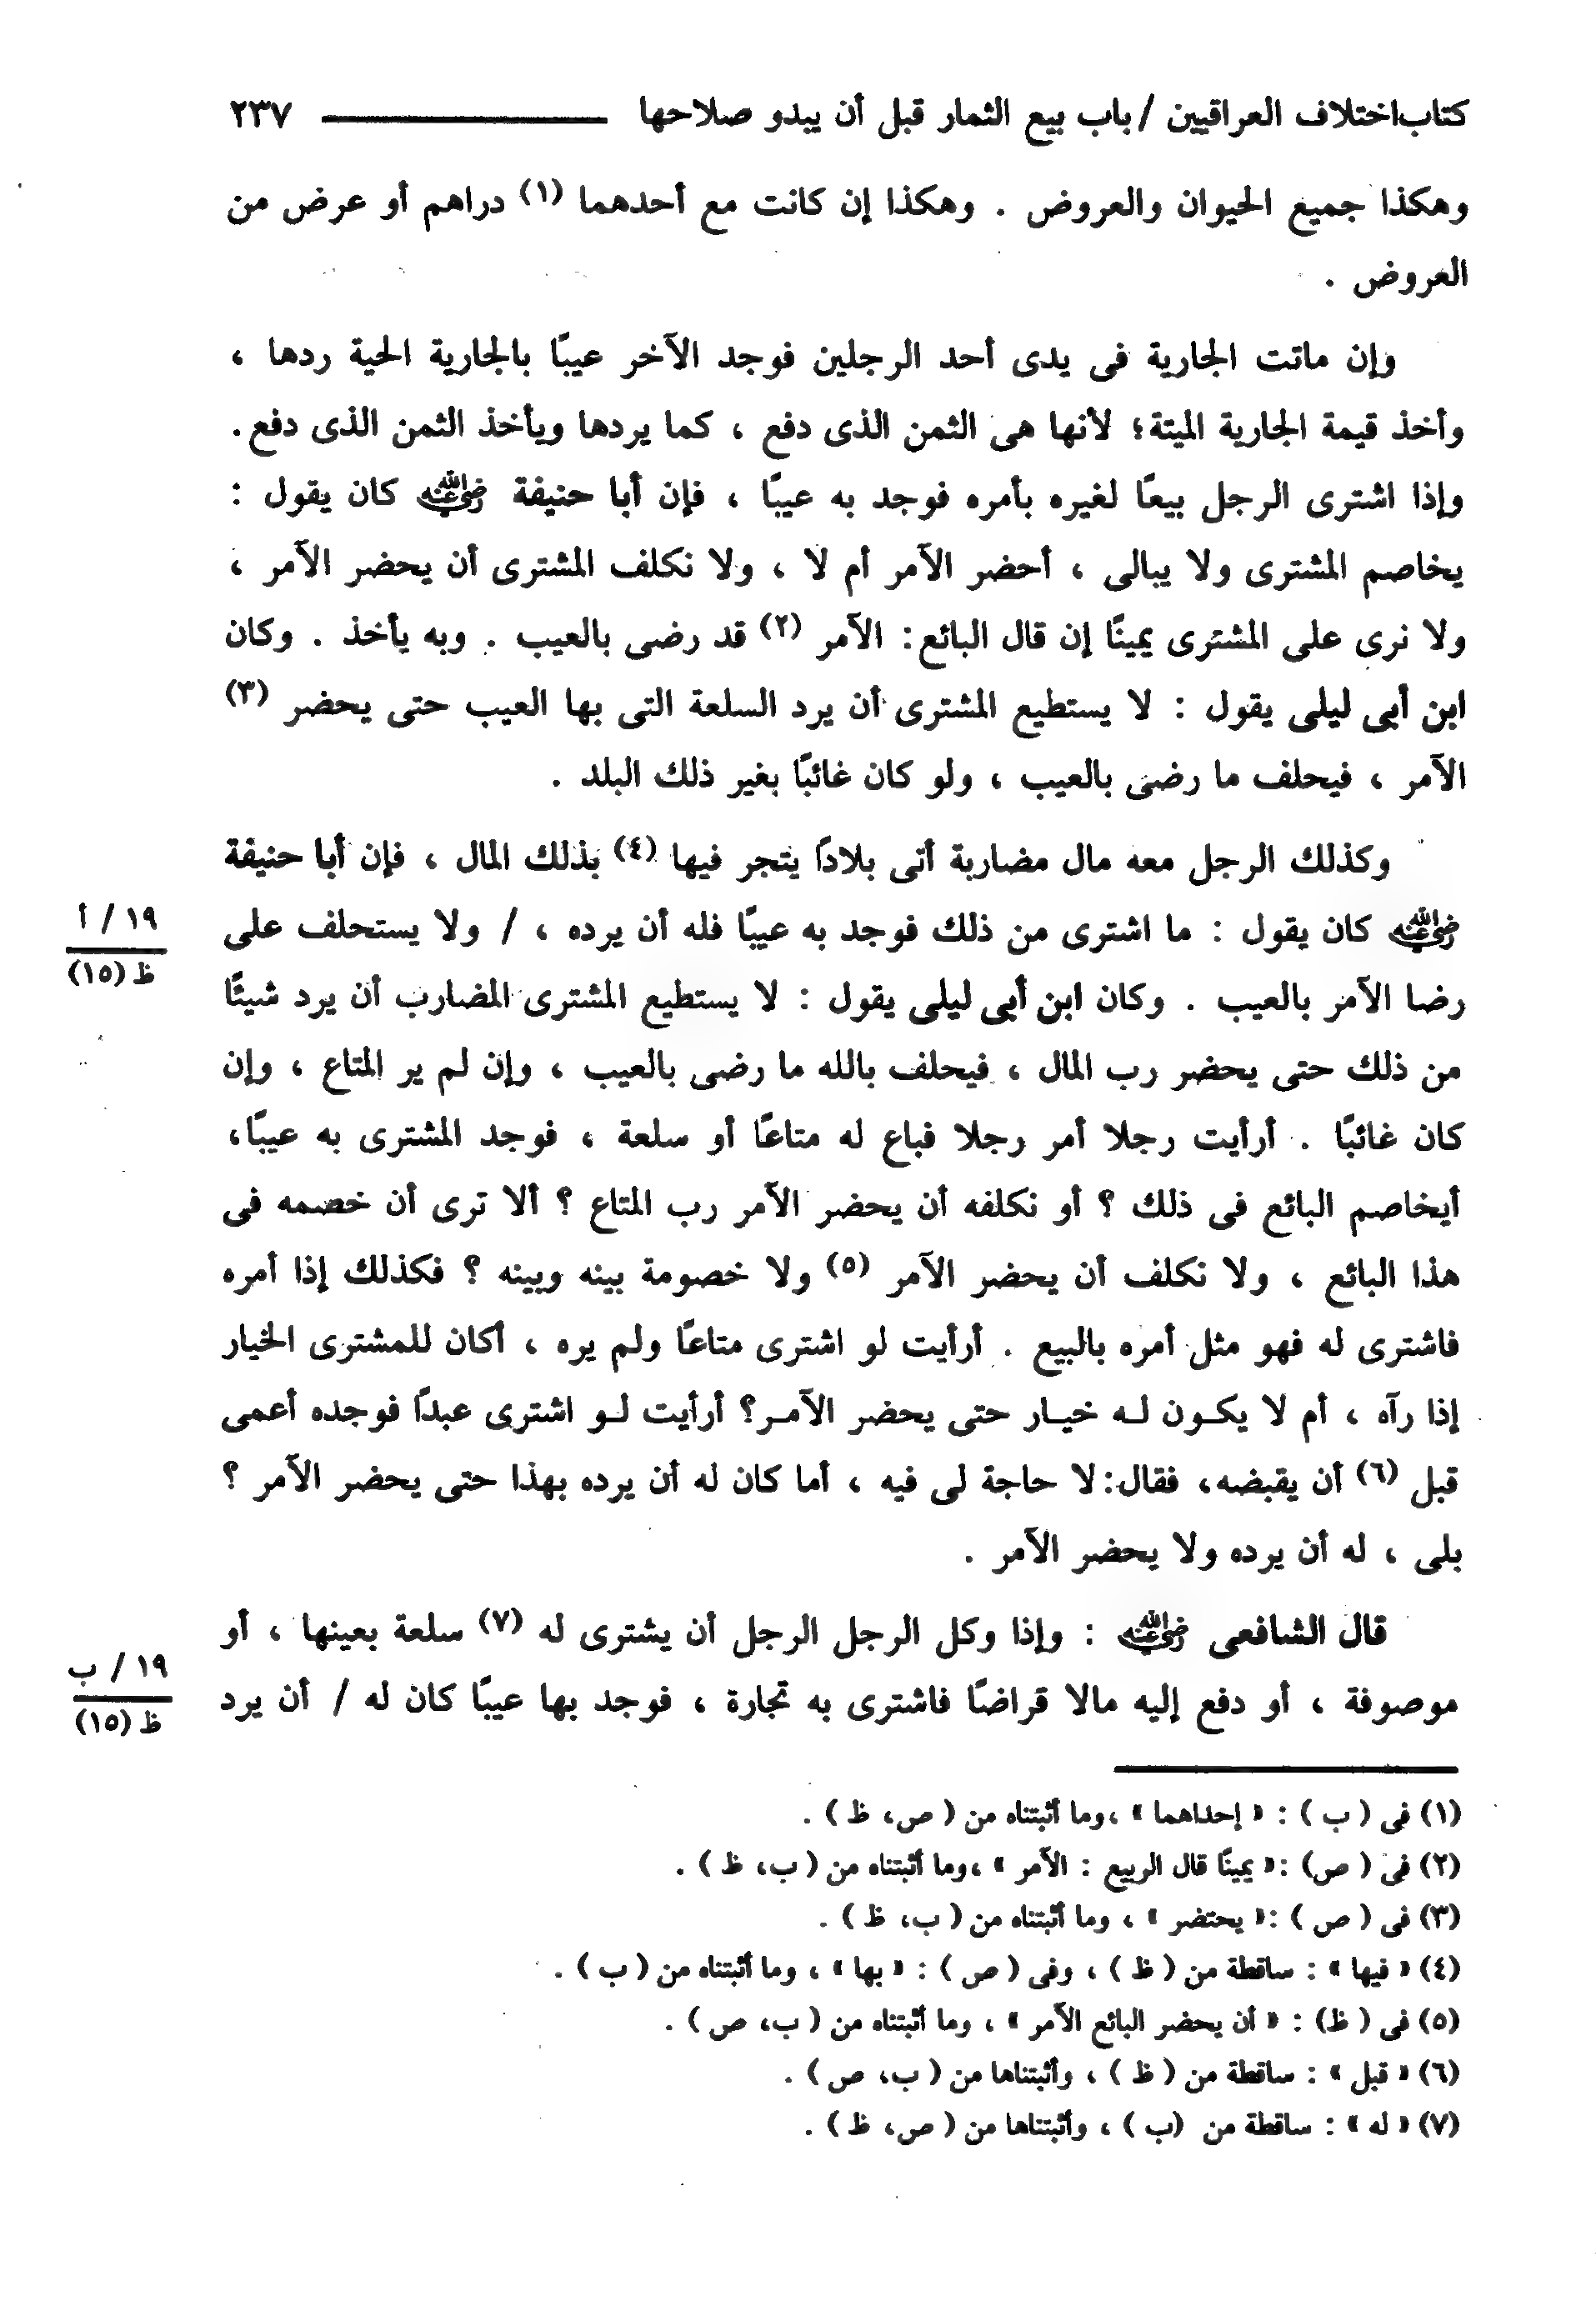 كتاب اختلاف العراقيين / باب بيع الثمار قبل أن يبدو صلاحها ــــــــــــ ٢٣٧
وهكذا جميع الحيوان والعروض . وهكذا إن كانت مع أحدهما (١) دراهم أو عرض من
العروض .
وإن ماتت الجارية فى يدى أحد الرجلين فوجد الآخر عيبًا بالجارية الحية ردها ،
وأخذ قيمة الجارية الميتة؛ لأنها هى الثمن الذى دفع ، كما يردها ويأخذ الثمن الذى دفع.
وإذا اشترى الرجل بيعًا لغيره بأمره فوجد به عيبًا ، فإن أبا حنيفة رضي الله عنه كان يقول :
يخاصم المشترى ولا يبالى ، أحضر الآمر أم لا ، ولا نكلف المشترى أن يحضر الآمر ،
ولا نرى على المشترى يمينًا إن قال البائع: الآمر (٢) قد رضى بالعيب . وبه يأخذ . وكان
ابن أبى ليلى يقول : لا يستطيع المشترى أن يرد السلعة التى بها العيب حتى يحضر (٣)
الآمر ، فيحلف ما رضى بالعيب ، ولو كان غائبًا بغير ذلك البلد .
وكذلك الرجل معه مال مضاربة أتى بلادًا يتجر فيها (٤) بذلك المال ، فإن أبا حنيفة
رضي الله عنه كان يقول : ما اشترى من ذلك فوجد به عيبًا فله أن يرده ، / ولا يستحلف على
١٩ / أ
ظ (١٥)
رضا الآمر بالعيب . وكان ابن أبى ليلى يقول : لا يستطيع المشترى المضارب أن يرد شيئًا
من ذلك حتى يحضر رب المال ، فيحلف بالله ما رضى بالعيب ، وإن لم ير المتاع ، وإن
كان غائبًا . أرأيت رجلا أمر رجلا فباع له متاعًا أو سلعة ، فوجد المشترى به عيبًا،
أيخاصم البائع فى ذلك ؟ أو نكلفه أن يحضر الآمر رب المتاع ؟ ألا ترى أن خصمه فى
هذا البائع ، ولا نكلف أن يحضر الآمر (٥) ولا خصومة بينه وبينه ؟ فكذلك إذا أمره
فاشترى له فهو مثل أمره بالبيع . أرأيت لو اشترى متاعًا ولم يره ، أكان للمشترى الخيار
إذا رآه ، أم لا يكـون لـه خيـار حتى يحضر الآمـر؟ أرأيت لـو اشترى عبدًا فوجده أعمى
قبل (٦) أن يقبضه، فقال: لا حاجة لى فيه ، أما كان له أن يرده بهذا حتى يحضر الآمر ؟
بلى ، له أن يرده ولا يحضر الآمر .
قال الشافعى رضي الله عنه : وإذا وكل الرجل الرجل أن يشترى له (٧) سلعة بعينها ، أو
موصوفة ، أو دفع إليه مالا قراضًا فاشترى به تجارة ، فوجد بها عيبًا كان له / أن يرد
١٩ / ب
ظ (١٥)
(١) فى ( ب ) : « إحداهما » ،وما أثبتناه من ( ص، ظ ) .
(٢) فى ( ص) :« يمينًا قال الربيع : الآمر » ،وما أثبتناه من ( ب، ظ ) .
(٣) فى ( ص ) :« يحتضر » ، وما أثبتناه من ( ب، ظ ) .
(٤) « فيها » : ساقطة من ( ظ ) ، وفى ( ص ) : « بها » ، وما أثبتناه من ( ب ) .
(٥) فى ( ظ) : « أن يحضر البائع الآمر » ، وما أثبتناه من ( ب، ص ) .
(٦) « قبل » : ساقطة من ( ظ ) ، وأثبتناها من ( ب، ص ) .
(٧) « له » : ساقطة من (ب ) ، وأثبتناها من ( ص، ظ ) .